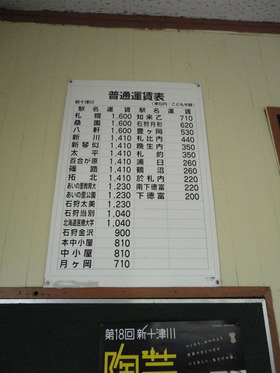 普通運賃表
新十津川
(単位円・こども半額)
駅名 運賃 駅名 運賃
札幌 1,600 知来乙 710
桑園 1,600 石狩月形 620
八軒 1,600 豊ヶ岡 530
新川 1,410 札比内 440
新琴似 1,410 晩生内 350
太平 1,410 札的 350
百合が原 1,410 浦臼 260
篠路 1,410 鶴沼 260
拓北 1,410 於札内 220
あいの里教育大 1,230 南下徳富 220
あいの里公園 1,230 下徳富 200
石狩太美 1,230
石狩当別 1,040
北海道医療大学 1,040
石狩金沢 900
本中小屋 810
中小屋 810
月ヶ岡 710
第18回 新十津川
陶芸